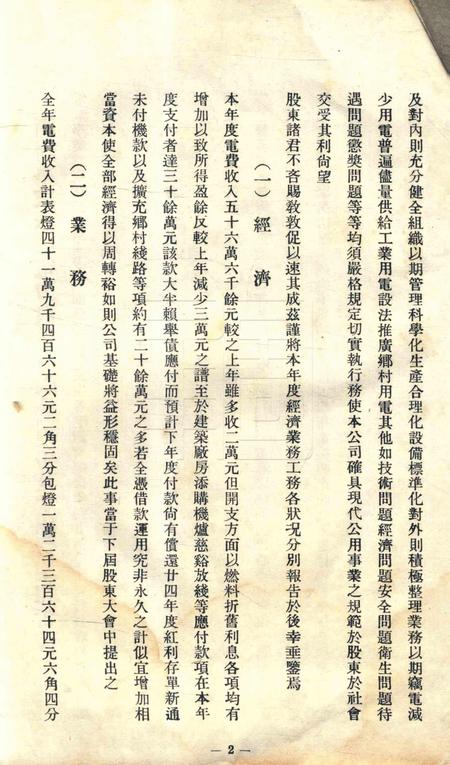 及對內則充分健全組織以期管理科學化生產合理化設備標準化對外則積極整理業務以期竊電減
少用電普遍儘量供給工業用電設法推廣鄉村用電其他如技術問題經濟問題安全問題衛生問題待
遇問題懲獎問題等等均須嚴格規定切實執行務使本公司確具現代公用事業之規範於股東於社會
交受其利尙望
股東諸君不吝賜敎敦促以速其成茲謹將本年度經濟業務工務各狀况分別報告於後幸垂鑒焉
(一)經濟
本年度電費收入五十六萬六千餘元較之上年雖多收二萬元但開支方面以燃料折舊利息各項均有
增加以致所得盈餘反較上年減少三萬元之譜至於建築廠房添購機爐慈谿放綫等應付款項在本年
度支付者達三十餘萬元該款大半賴舉債應付而預計下年度付款尙有償還廿四年度紅利存單新通
未付機款以及擴充鄉村綫路等項約有二十餘萬元之多若全憑借款運用究非永久之計似宜增加相
當資本使全部經濟得以周轉裕如則公司基礎將益形穩固矣此事當于下屆股東大會中提出之
(二)業務
全年電費收入計表燈四十一萬九千四百六十六元二角三分包燈一萬二千三百六十四元六角四分
— 2 —